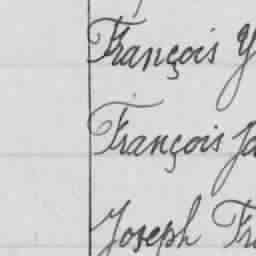 François Y
François Ja
Joseph Fra